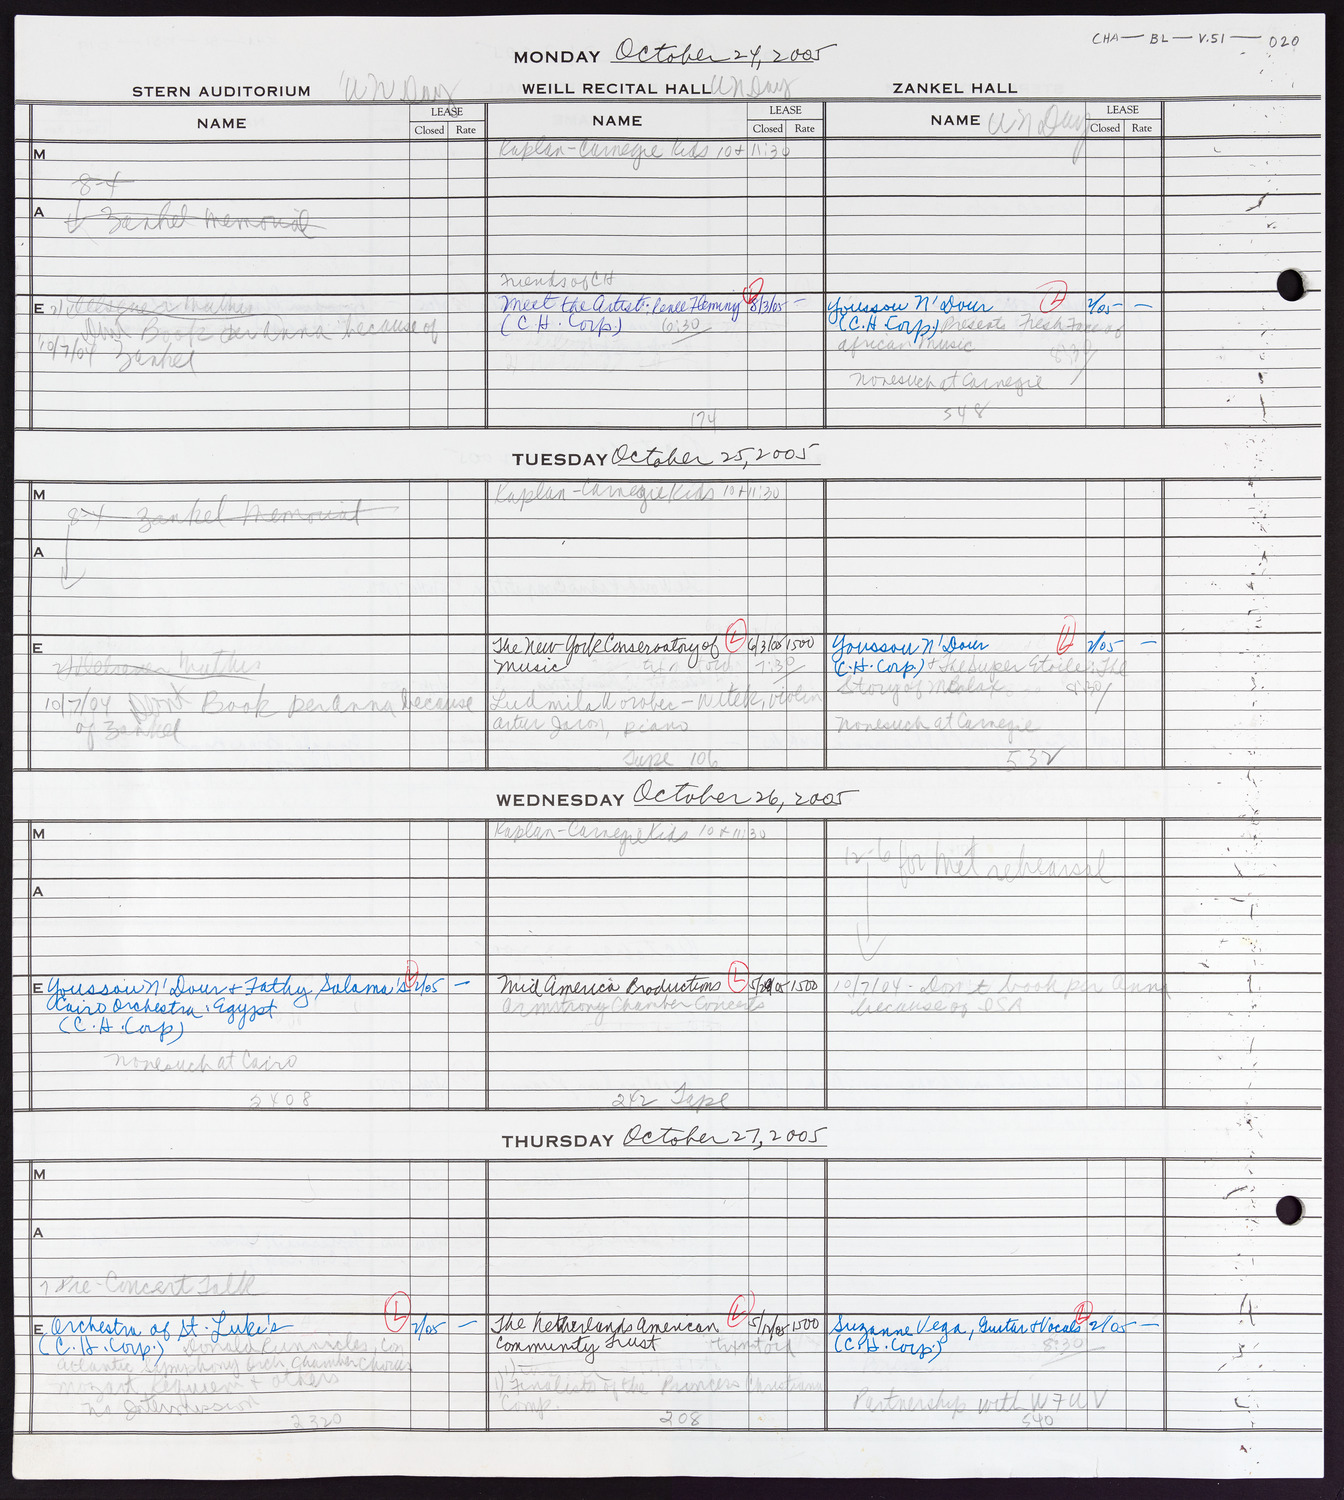 CHA — BL — V.51 — 020
MONDAY October 24, 2005
STERN AUDITORIUM UN Day
WEILL RECITAL HALL UN Day
ZANKEL HALL
NAME LEASE Closed Rate
NAME LEASE Closed Rate
NAME UN Day LEASE Closed Rate
M
8-4
A
Zankel Memorial
E
Don't Book per Anna because of
10/7/04 Zankel
Kaplan-Carnegie Kids 10 + 11:30
Friends of CH
Meet the Artist: Renee Fleming L 8/3/05 —
(C.H. Corp) 6:30
174
Youssou N'Dour L 2/05 —
(C.H. Corp) Presents Fresh Face of
african Music 8:30
Nonesuch at Carnegie
548
TUESDAY October 25, 2005
M
8-4 Zankel Memorial
A
E
10/7/04 Don't Book per Anna because
of Zankel
Kaplan-Carnegie Kids 10 + 11:30
The New York Conservatory of L 6/3/05 1500
Music 7:30
Ludmila Worobec-Witek, violin
Artur Jaron, piano
Tape 106
Youssou N'Dour L 2/05 —
(C.H. Corp) + The Super Etoile: The
Story of Mbalax 8:30
Nonesuch at Carnegie
532
WEDNESDAY October 26, 2005
M
A
E Youssou N'Dour + Fathy Salama's L 2/05 —
Cairo Orchestra, Egypt
(C.H. Corp)
Nonesuch at Cairo
2408
Kaplan-Carnegie Kids 10 + 11:30
Mid America Productions L 1500
Armstrong Chamber Concerts
242 Tape
12-6 for Met rehearsal
10/7/04 - Don't book per Anna
because of ISA
THURSDAY October 27, 2005
M
A
7 Pre-Concert Talk
E Orchestra of St. Luke's L 2/05 —
(C.H. Corp) Donald Runnicles, Con
Atlantic Symphony Orch Chamber Chorus
Mozart Requiem + others
No Intermission
2320
The Netherlands American L 1500
Community Trust
1) Finalists of the Princess Christiana
Comp.
208
Suzanne Vega, Guitar + Vocals L 2/05 —
(C.H. Corp) 8:30
Partnership with WFUV
540